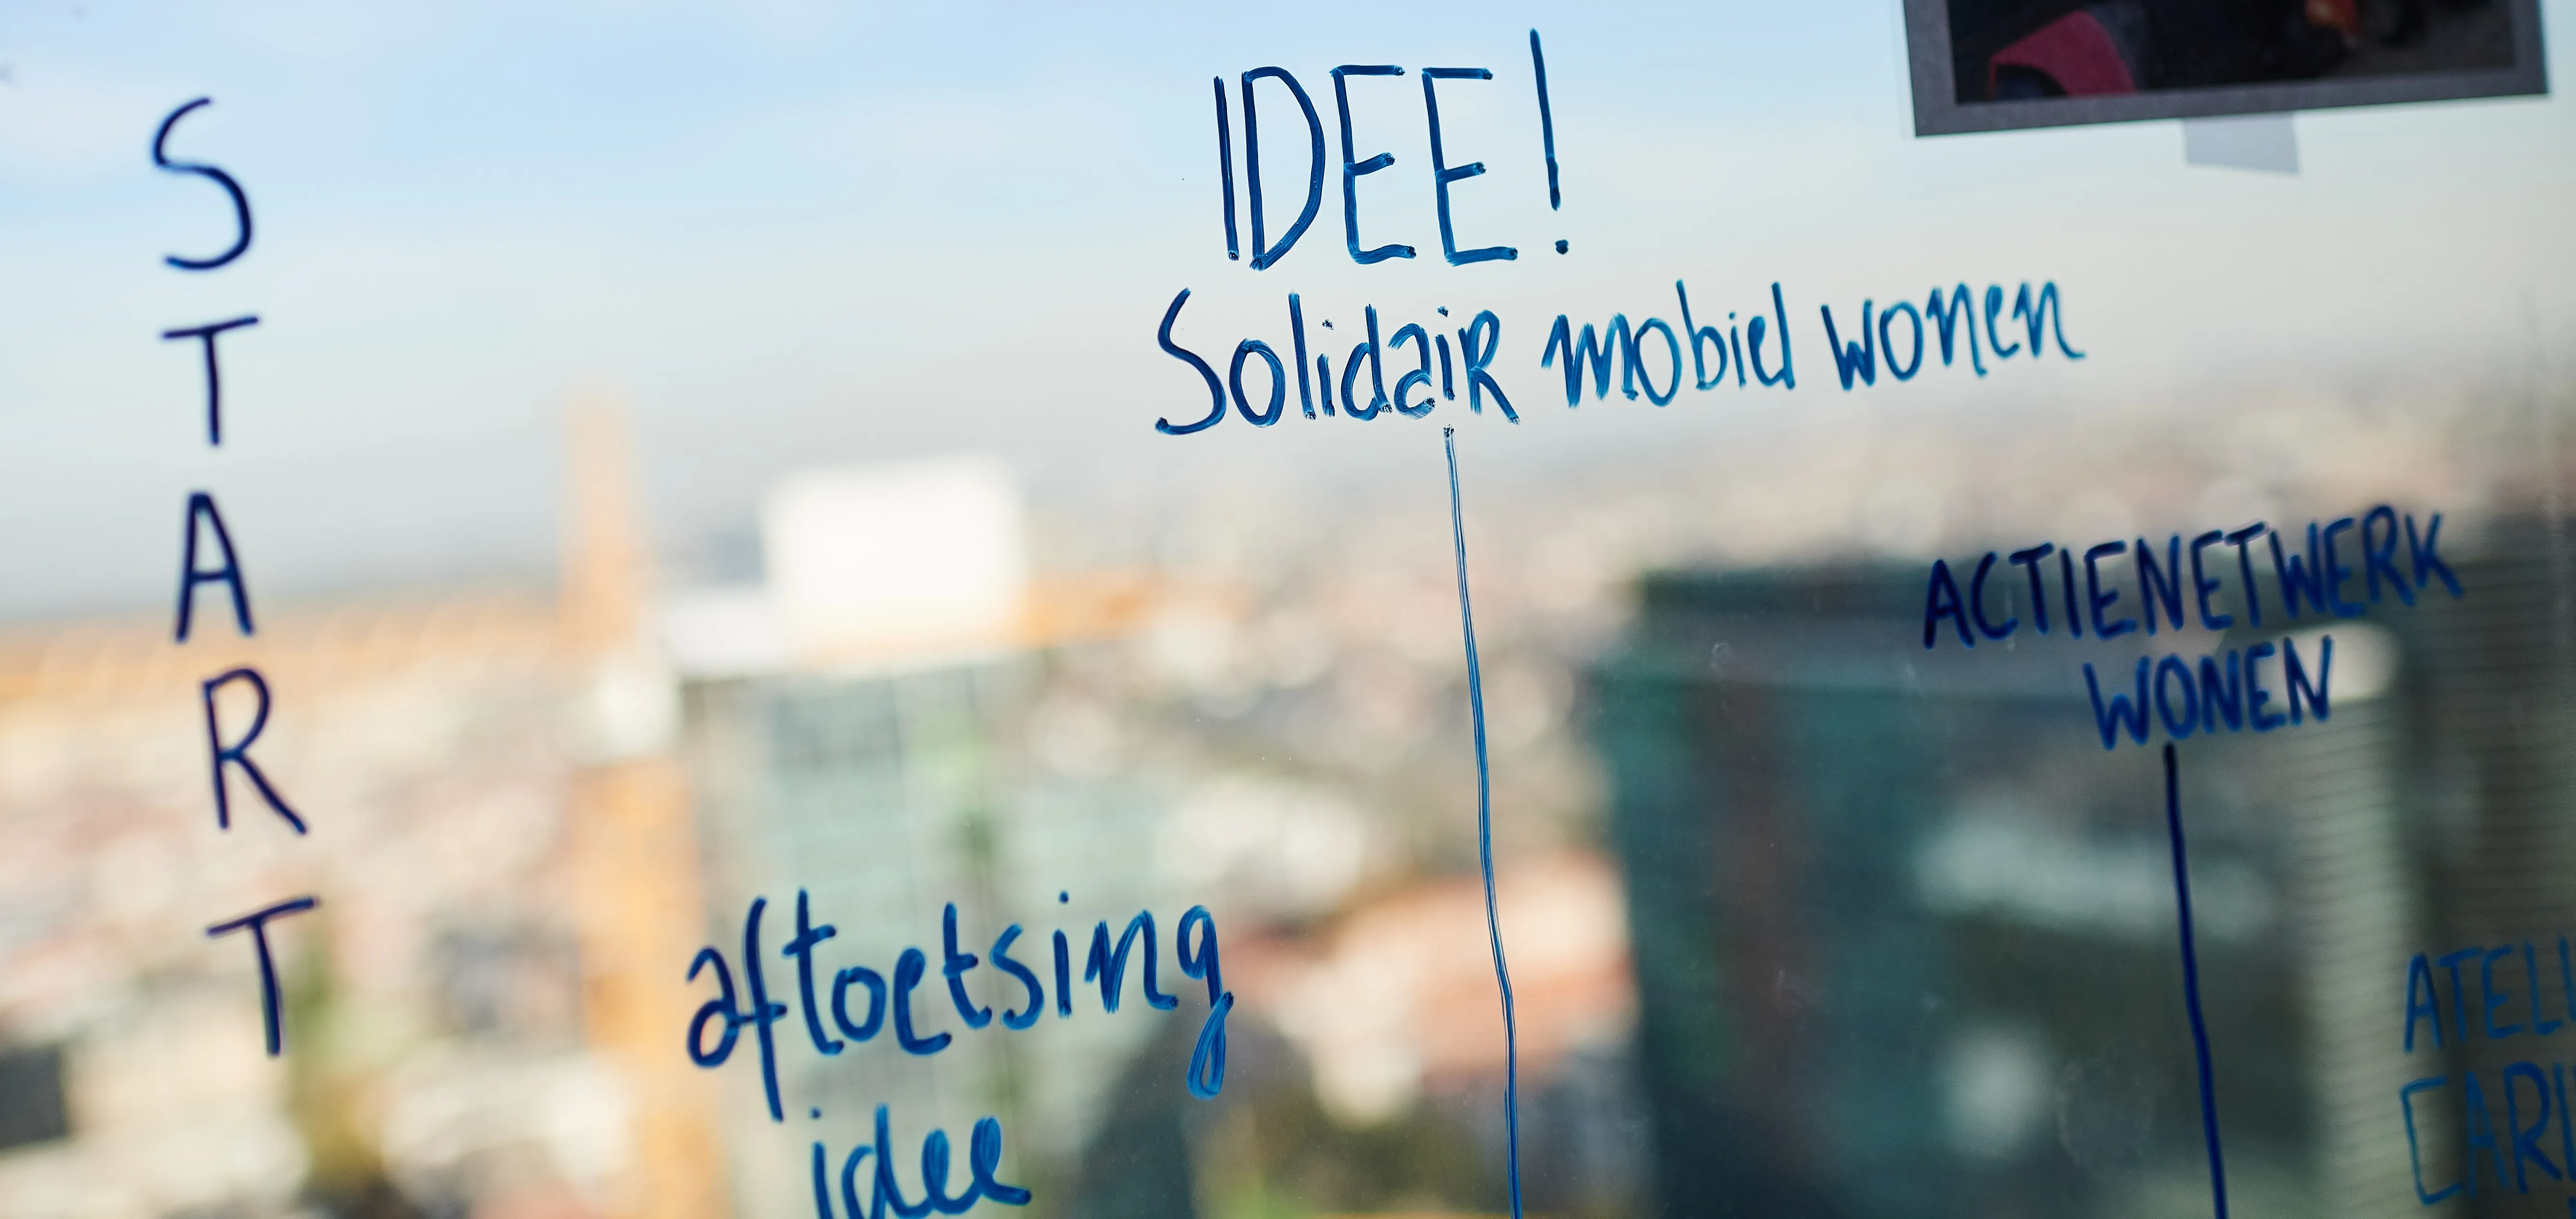 START
IDEE!
Solidair mobiel wonen
ACTIENETWERK
WONEN
aftoetsing
idee